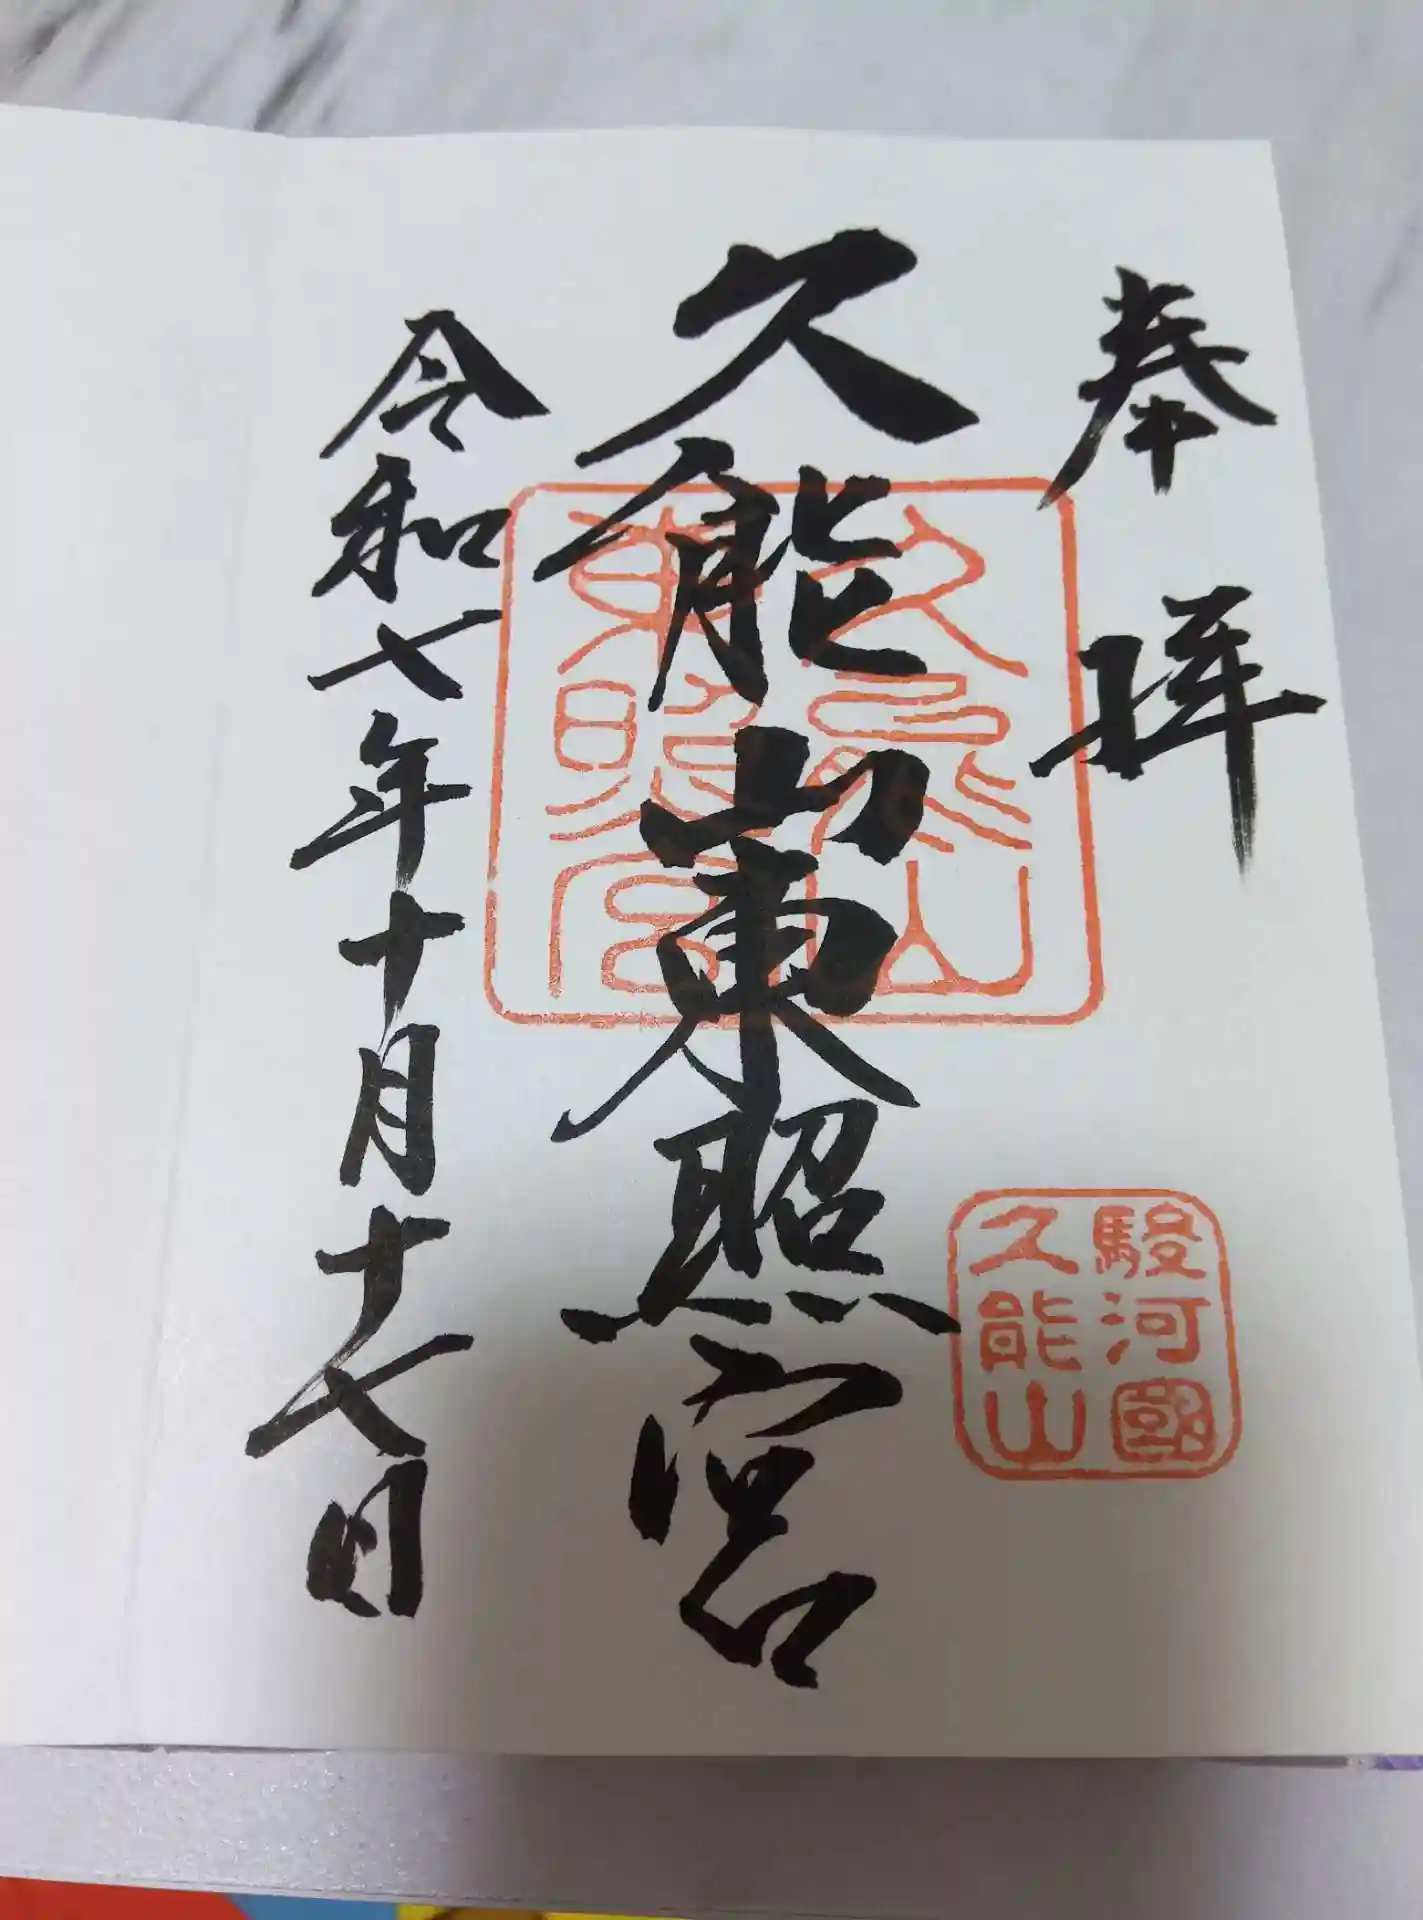 奉拝
久能山東照宮
令和七年十月十七日
久能山
東照宮
駿河國
久能山